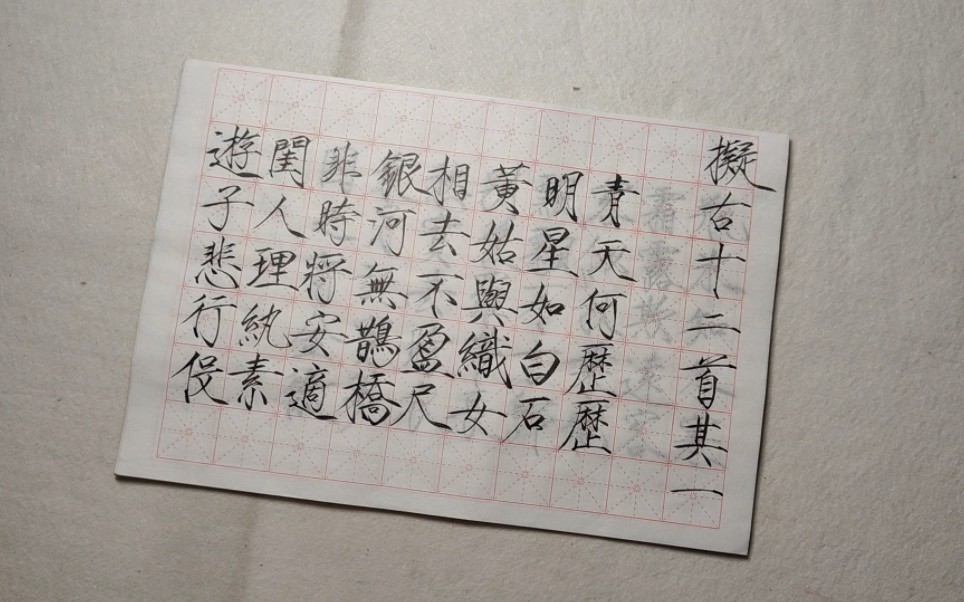 擬古十二首其一
青天何歷歷
明星如白石
黃姑與織女
相去不盈尺
銀河無鵲橋
非時將安適
閨人理紈素
遊子悲行役